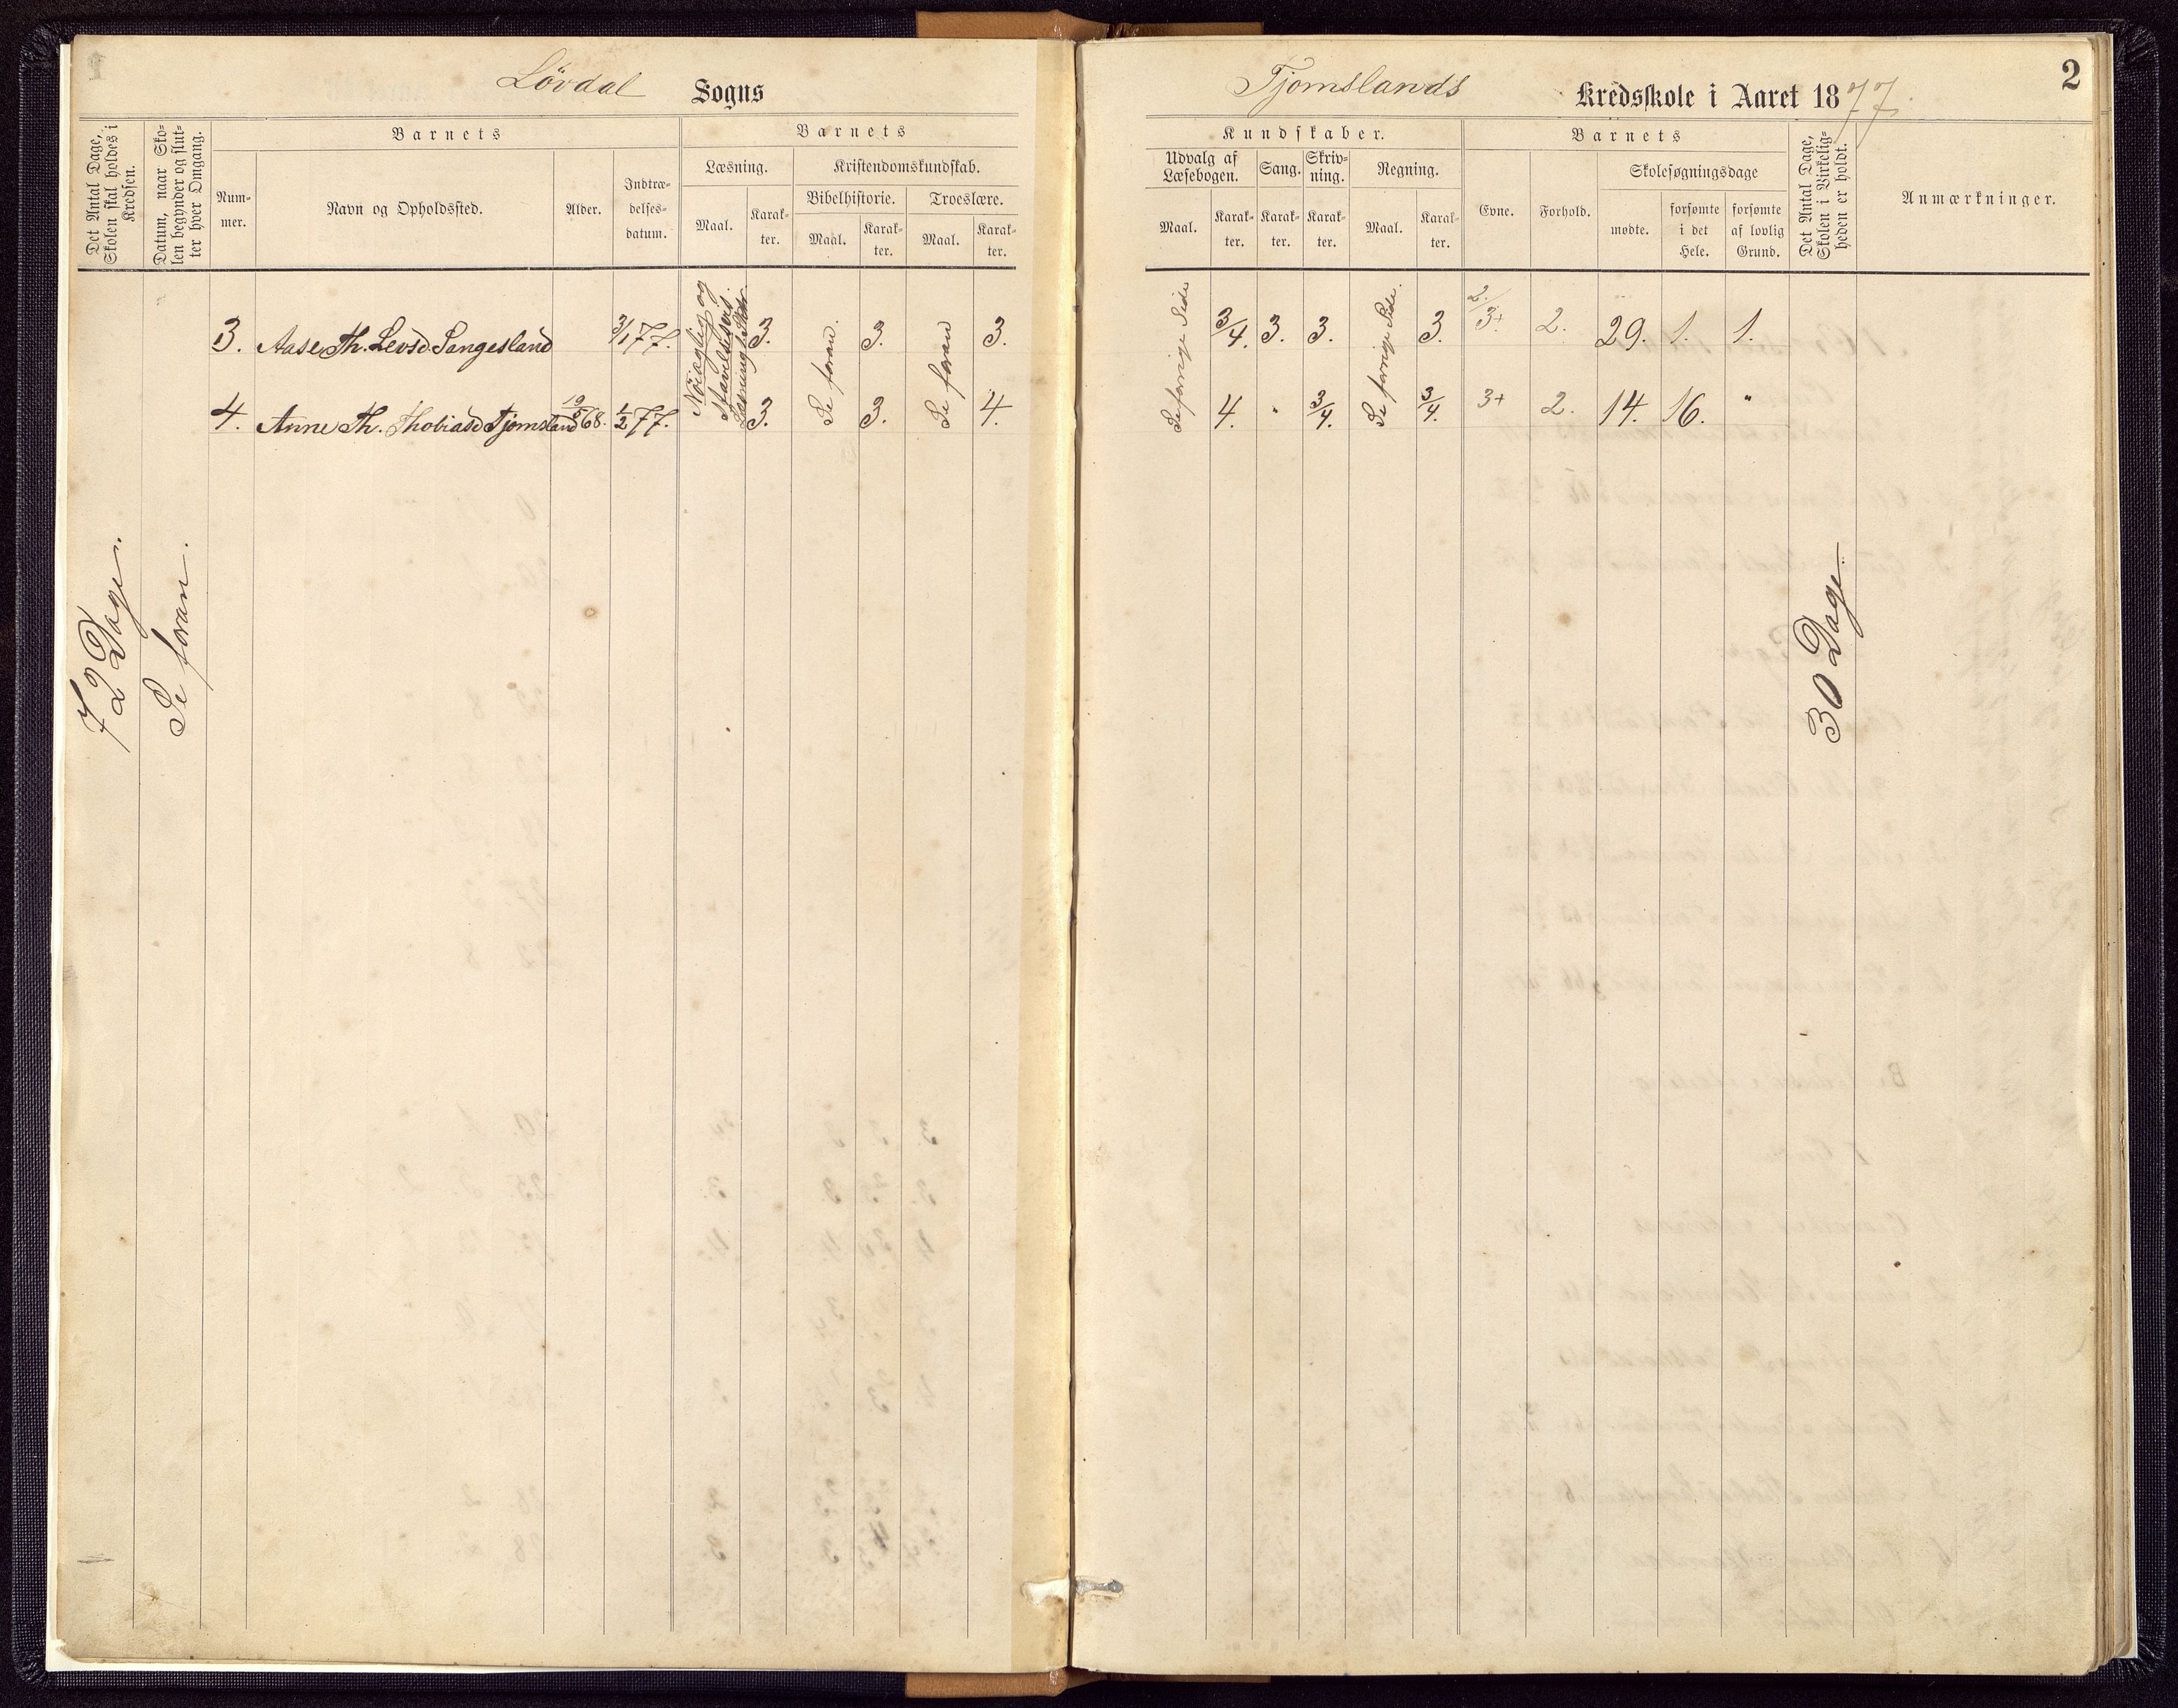 Lövdal Sogns
Tjomslands Kredsskole i Aaret 1877.
2
Det Antal Dage, Skolen skal holdes i Kredsen.
Datum, naar Skolen begynder og slutter hver Omgang.
Barnets
Nummer.
Navn og Opholdssted.
Alder.
Indtrædelsesdatum.
Barnets
Læsning.
Maal.
Karakter.
Kristendomskundskab.
Bibelhistorie.
Maal.
Karakter.
Troeslære.
Maal.
Karakter.
Kundskaber.
Udvalg af Læsebogen.
Maal.
Karakter.
Sang.
Karakter.
Skrivning.
Karakter.
Regning.
Maal.
Karakter.
Barnets
Evne.
Forhold.
Skolesøgningsdage
mødte.
forsømte i det Hele.
forsømte af lovlig Grund.
Det Antal Dage, Skolen i Virkeligheden er holdt.
Anmærkninger.
72 Dage.
Se foran.
3. Aase Th. Levsd. Sangesland 3/1 77. 3. 3. 3. 3/4. 3. 3. 3. 2./3+. 2. 29. 1. 1.
4. Anne Th. Thobiasd Tjomsland 19/8 68. 1/2 77. 3. 3. 4. 4. " 3/4. 3/4. 3+ 2. 14. 16. "
Nöiaglig og
Se foran.
Se foran
Se forrige Side
Se forrige Side.
30 Dage.